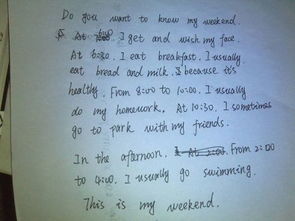 Do you want to know my weekend.
At 6:00. I get and wish my face.
At 6:30. I eat breakfast. I usually
eat bread and milk. I because it's
healthy. From 8:00 to 10:00. I usually
do my homework. At 10:30. I somotimas
go to park with my friends.
In the afternoon. From 2:00
to 4:00. I usually go swimming.
This is my weekend.